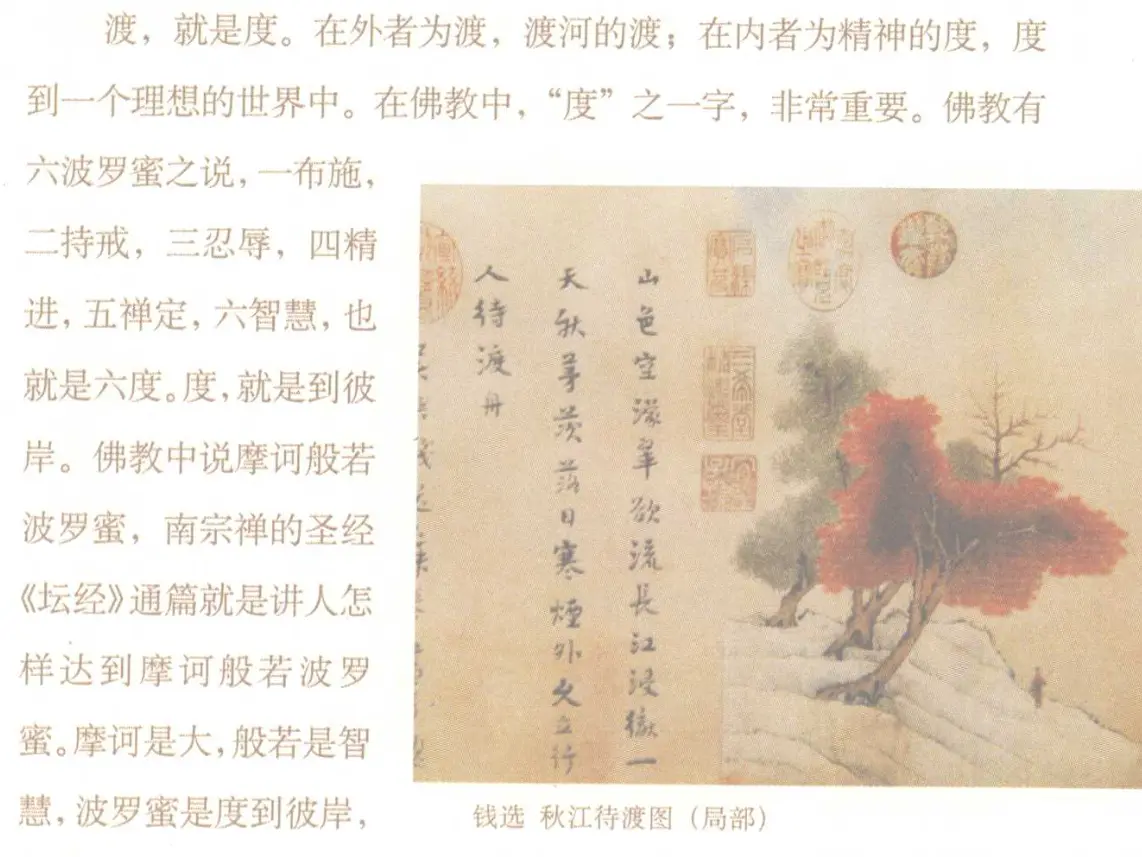 渡，就是度。在外者为渡，渡河的渡；在内者为精神的度，度
到一个理想的世界中。在佛教中，“度”之一字，非常重要。佛教有
六波罗蜜之说，一布施，
二持戒，三忍辱，四精
进，五禅定，六智慧，也
就是六度。度，就是到彼
岸。佛教中说摩诃般若
波罗蜜，南宗禅的圣经
《坛经》通篇就是讲人怎
样达到摩诃般若波罗
蜜。摩诃是大，般若是智
慧，波罗蜜是度到彼岸，
山色空濛翠欲流長江浸徹一
天秋茅茨落日寒煙外久立行
人待渡舟
钱选 秋江待渡图（局部）